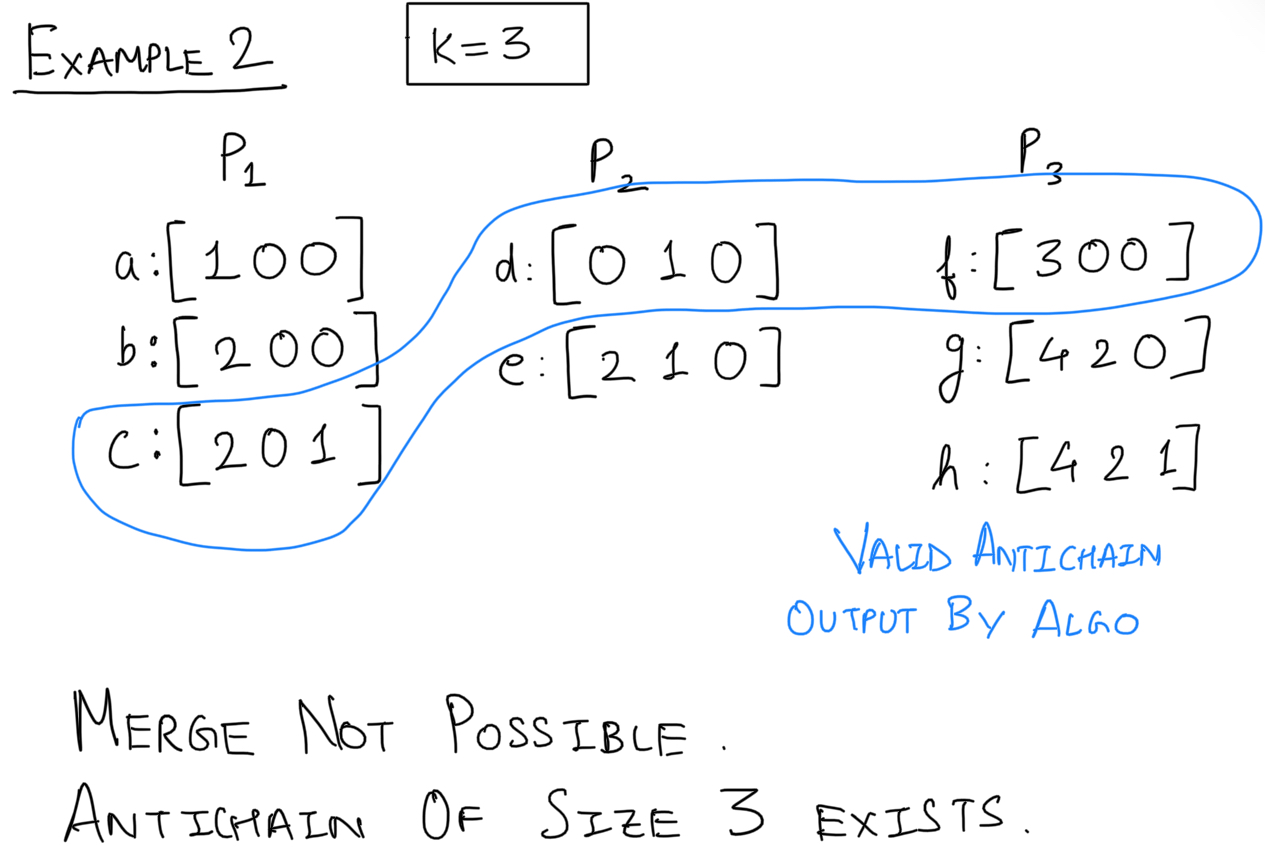 EXAMPLE 2
K=3
P1 P2 P3
a:[100] d:[0 1 0] f:[300]
b:[200] e:[2 1 0] g:[420]
c:[201] h:[421]
VALID ANTICHAIN
OUTPUT BY ALGO
MERGE NOT POSSIBLE.
ANTICHAIN OF SIZE 3 EXISTS.